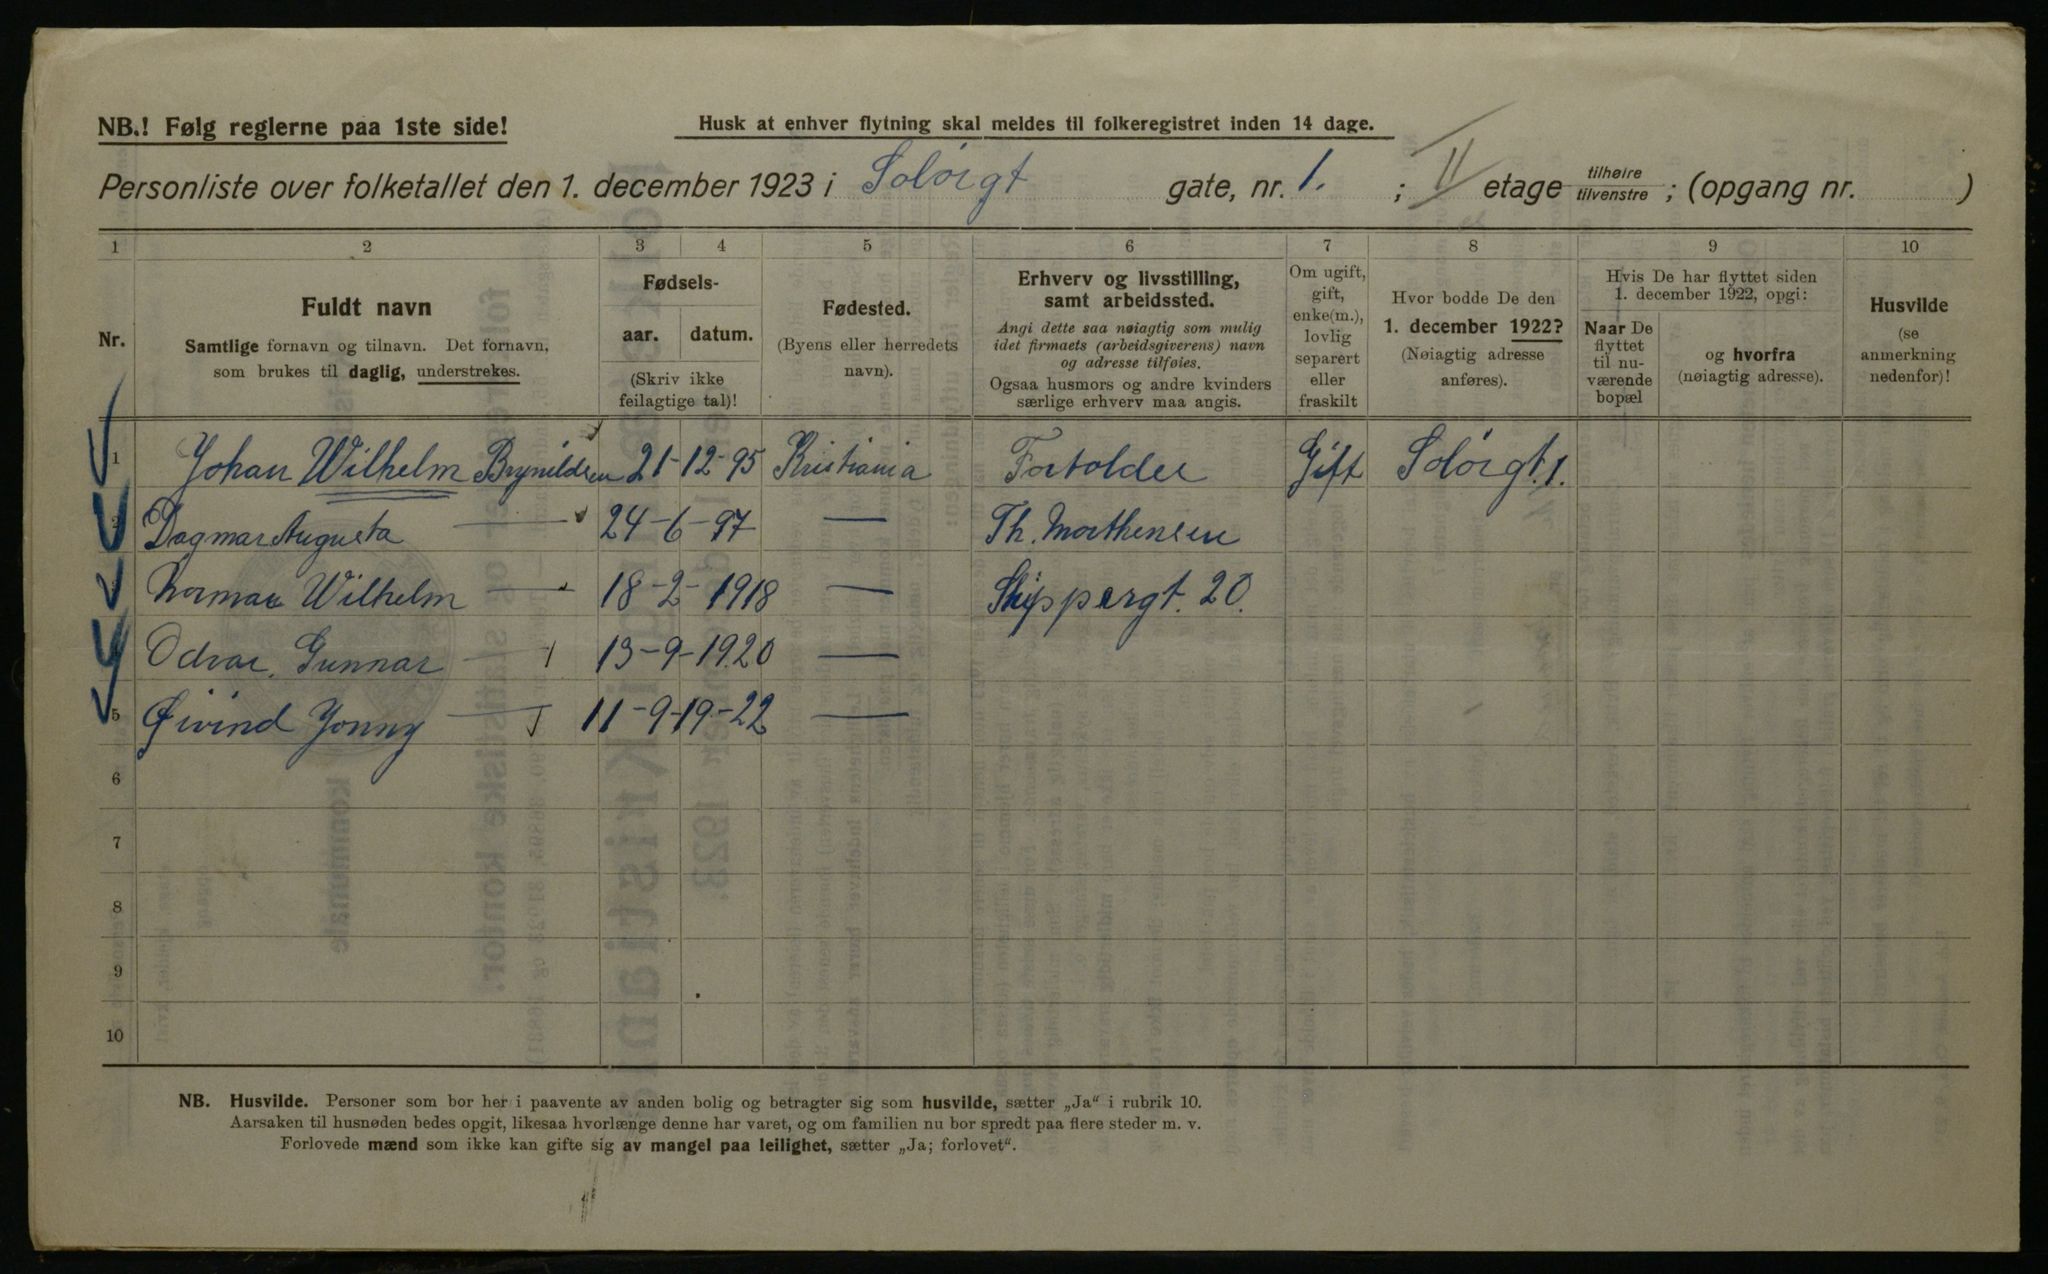 NB.! Følg reglerne paa 1ste side!
Husk at enhver flytning skal meldes til folkeregistret inden 14 dage.
Personliste over folketallet den 1. december 1923 i Solørgt gate, nr. 1. ; II etage tilhøire tilvenstre ; (opgang nr. )
1 2 3 4 5 6 7 8 9 10
Nr.
Fuldt navn
Samtlige fornavn og tilnavn. Det fornavn,
som brukes til daglig, understrekes.
Fødsels-
aar. datum.
(Skriv ikke
feilagtige tal)!
Fødested.
(Byens eller herredets
navn).
Erhverv og livsstilling,
samt arbeidssted.
Angi dette saa nøiagtig som mulig
idet firmaets (arbeidsgiverens) navn
og adresse tilføies.
Ogsaa husmors og andre kvinders
særlige erhverv maa angis.
Om ugift,
gift,
enke(m.),
lovlig
separert
eller
fraskilt
Hvor bodde De den
1. december 1922?
(Nøiagtig adresse
anføres).
Hvis De har flyttet siden
1. december 1922, opgi:
Naar De
flyttet
til nu-
værende
bopæl
og hvorfra
(nøiagtig adresse).
Husvilde
(se
anmerkning
nedenfor)!
1 Johan Wilhelm Brynildsen 21-12-95 Kristiania Fortolder Gift Solørgt. 1.
2 Dagmar Augusta — 24-6-97 — Th. Morthensen
3 Norman Wilhelm — 18-2-1918 — Skippergt. 20.
Odvar Gunnar — 13-9-1920 —
5 Øivind Jonny — 11-9-19-22 —
6
7
8
9
10
NB. Husvilde. Personer som bor her i paavente av anden bolig og betragter sig som husvilde, sætter „Ja“ i rubrik 10.
Aarsaken til husnøden bedes opgit, likesaa hvorlænge denne har varet, og om familien nu bor spredt paa flere steder m. v.
Forlovede mænd som ikke kan gifte sig av mangel paa leilighet, sætter „Ja; forlovet“.